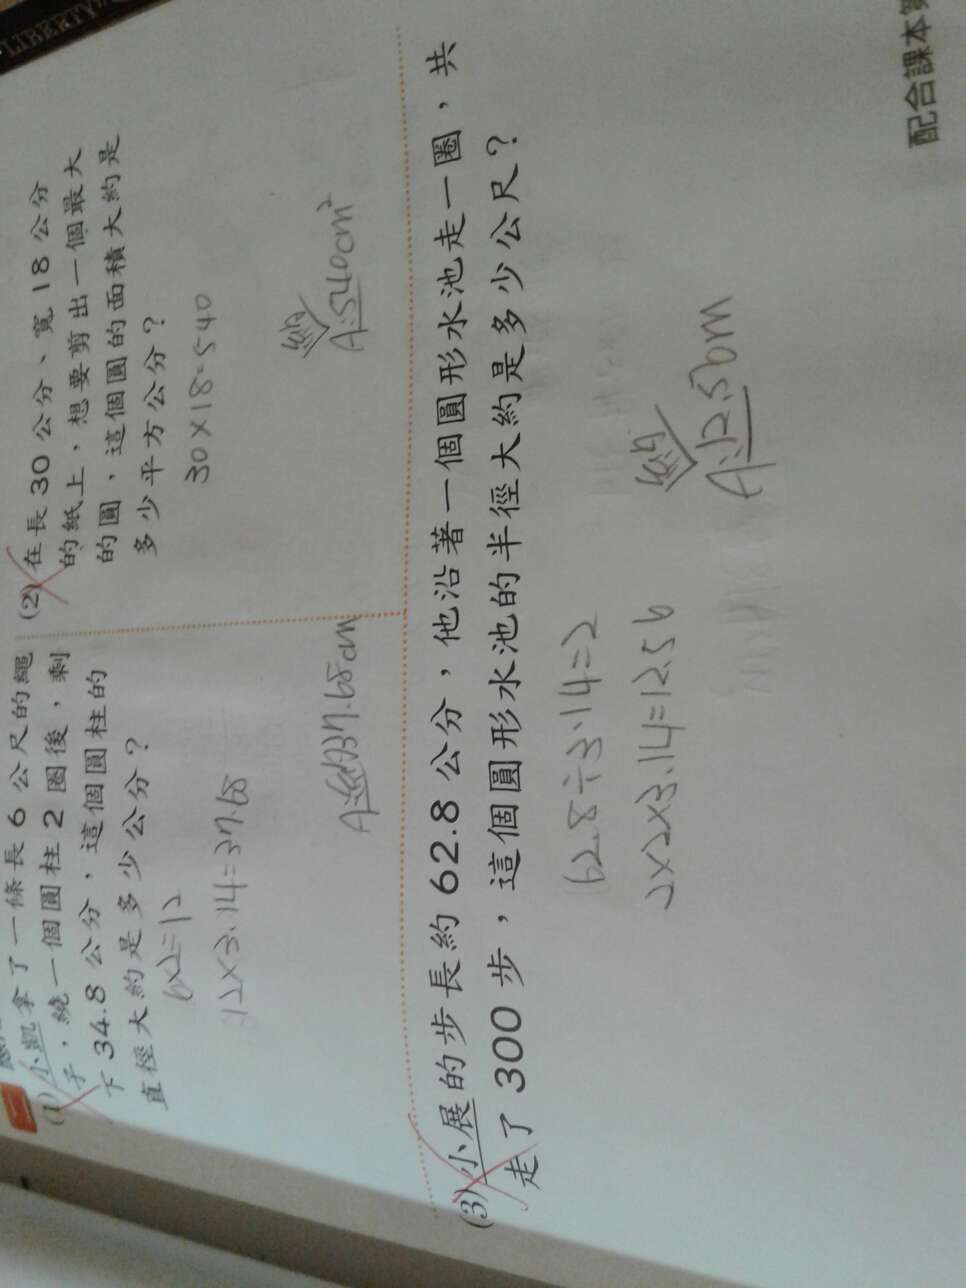 LIBERTY
(1) 小凱拿了一條長 6 公尺的繩
子，繞一個圓柱 2 圈後，剩
下 34.8 公分，這個圓柱的
直徑大約是多少公分？
6x2=12
12x3.14=37.68
A:約37.68cm
(2) 在長 30 公分、寬 18 公分
的紙上，想要剪出一個最大
的圓，這個圓的面積大約是
多少平方公分？
30x18=540
約
A:540cm²
(3) 小展的步長約 62.8 公分，他沿著一個圓形水池走一圈，共
走了 300 步，這個圓形水池的半徑大約是多少公尺？
62.8÷3.14=2
2x2x3.14=12.56
約
A:12.56m
配合課本第